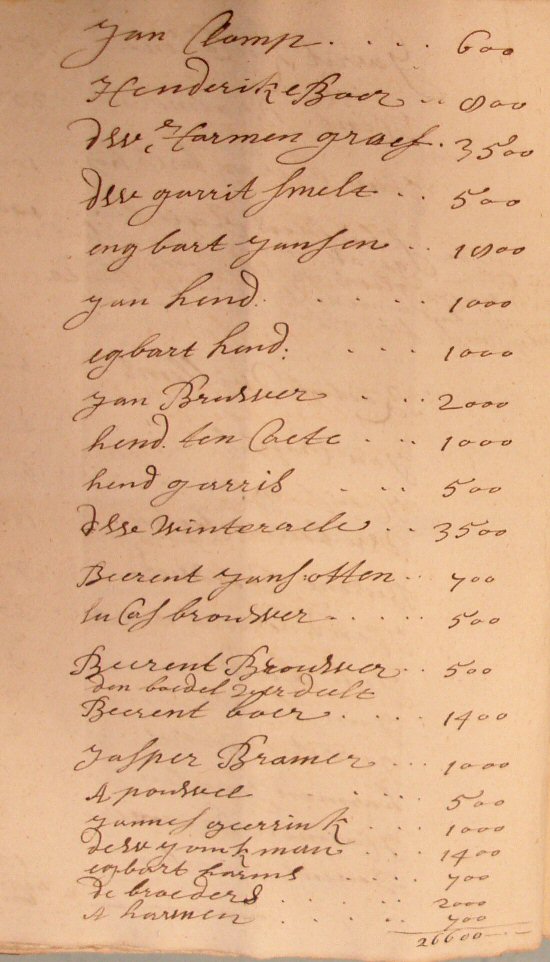 Jan Clomp . . . . 600
Henderik e Boer . . 800
dW. Harmen graef . 3500
dW garrit smelt . . 500
engbart Jansen . . 1800
Jan hend. . . . . 1000
egbart hend: . . . 1000
Jan Brouwer . . . 2000
hend. ten Caete . . . 1000
hend garris . . . 500
dWe Winteraele . . 3500
Beerent Jans: otten . . 700
luCas brouwer . . . . 500
Beerent Brouwer . . 500
den boedel verdeelt
Beerent boer . . . . 1400
Jasper Bramer . . . 1000
A pouwel . . . . 500
Jannes geerrink . . . 1000
de W Jonkman . . . 1400
egbart harms . . . 700
de broeders . . . . 2000
A harmen . . . . 700
26600